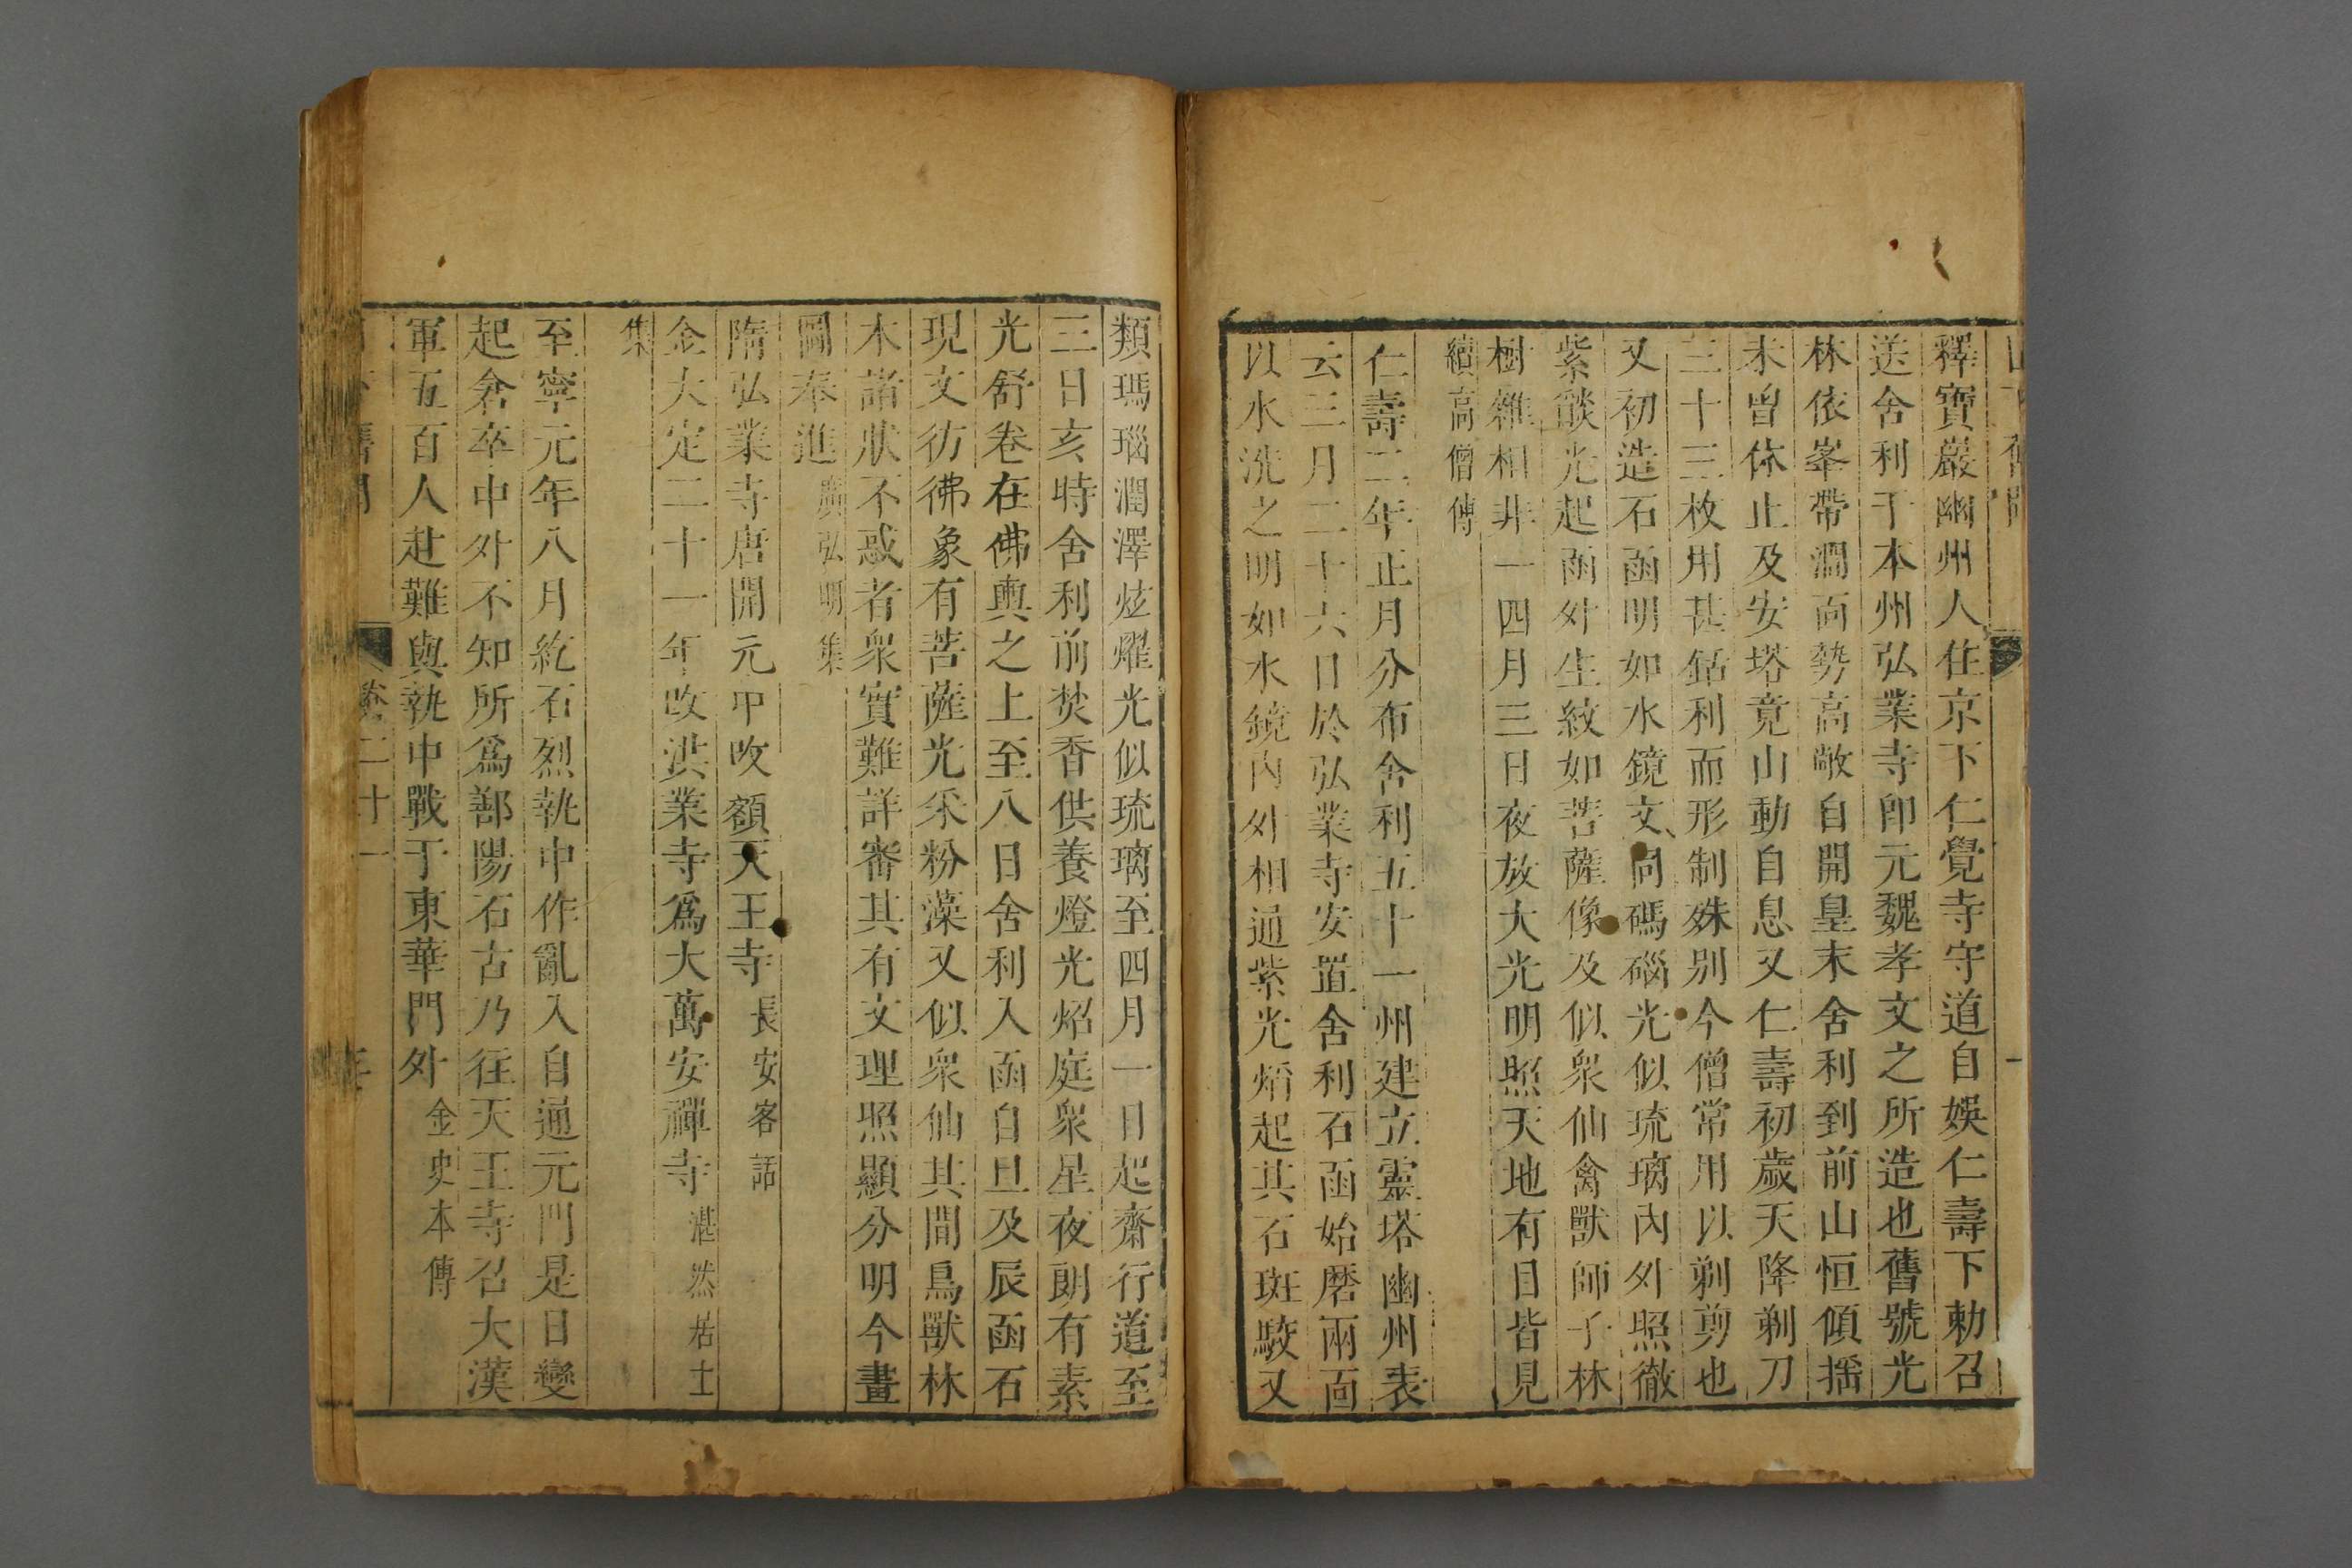 釋寶嚴幽州人住京下仁覺寺守道自娛仁壽下勅召
送舍利于本州弘業寺卽元魏孝文之所造也舊號光
林依峯帶澗面勢高敞自開皇末舍利到前山恒傾搖
未曾休止及安塔竟山動自息又仁壽初歲天降剃刀
三十三枚用甚銛利而形制殊別今僧常用以剃剪也
又初造石函明如水鏡文同碼碯光似琉璃內外照徹
紫燄光起函外生紋如菩薩像及似衆仙禽獸師子林
樹雜相非一四月三日夜放大光明照天地有目皆見
續高僧傳
仁壽二年正月分布舍利五十一州建立靈塔幽州表
云三月二十六日於弘業寺安置舍利石函始磨兩面
以水洗之明如水鏡內外相通紫光焰起其石斑駮又
類瑪瑙潤澤炫燿光似琉璃至四月一日起齋行道至
三日亥時舍利前焚香供養燈光焰庭衆星夜朗有素
光舒卷在佛輿之上至八日舍利入函自旦及辰函石
現文彷彿象有菩薩光釆粉藻又似衆仙其間鳥獸林
木諸狀不惑者衆實難詳審其有文理照顯分明今畫
圖奉進廣弘明集
隋弘業寺唐開元中改額天王寺長安客話
金大定二十一年改洪業寺爲大萬安禪寺湛然居士
集
至寧元年八月紇石烈執中作亂入自通元門是日變
起倉卒中外不知所爲鄯陽石古乃往天王寺召大漢
軍五百人赴難與執中戰于東華門外金史本傳
卷二十一